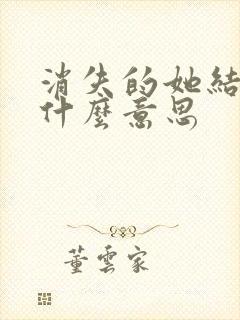 消失的她結
什麼意思
董雲家